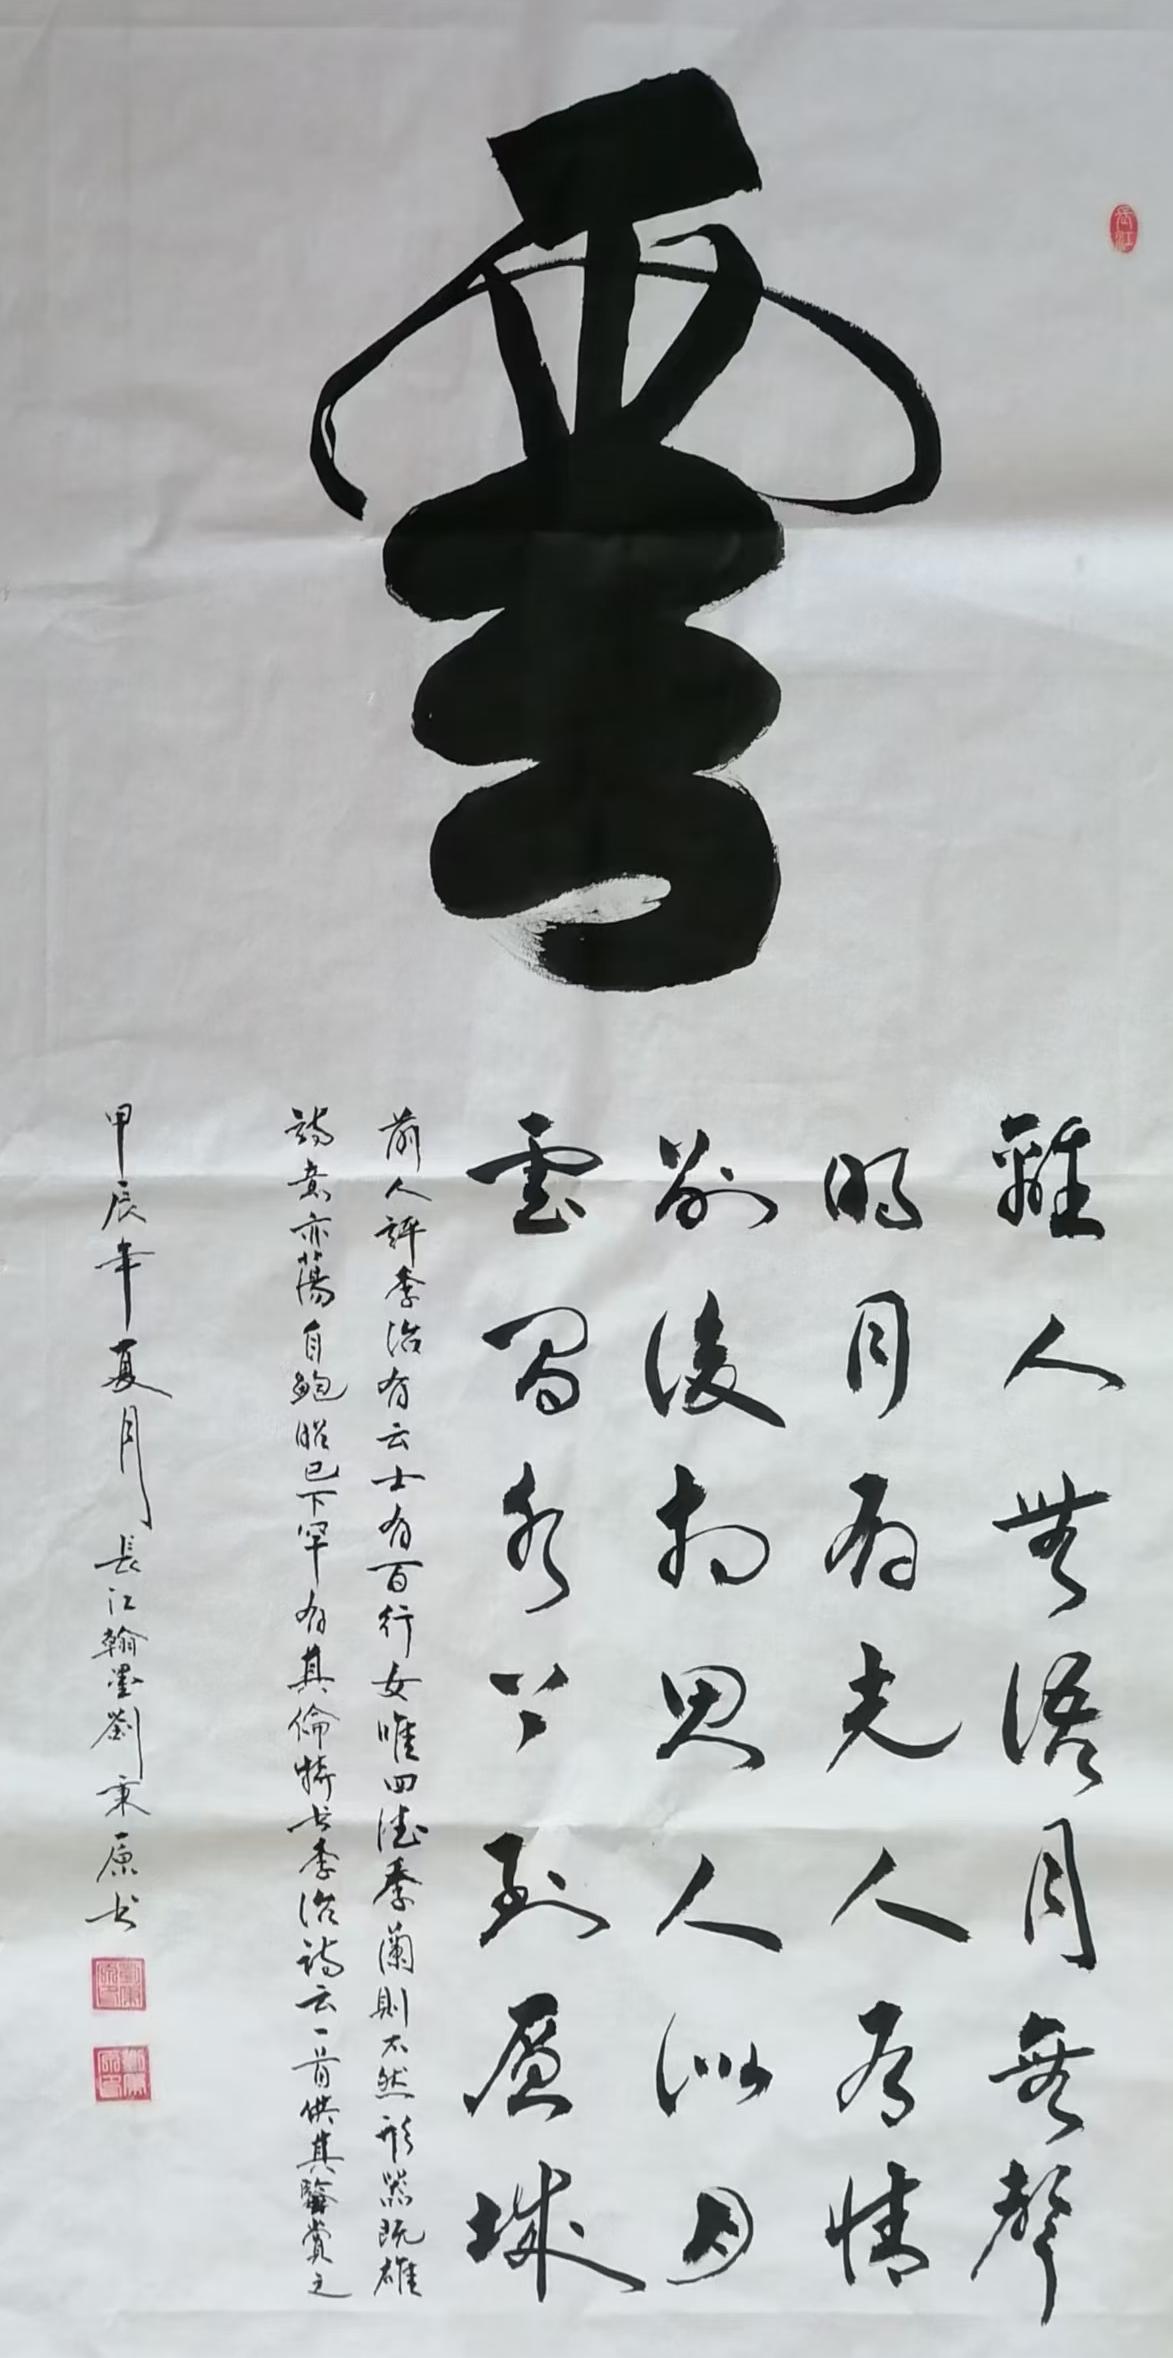 離人無語月無聲
明月有光人有情
別後相思人似月
雲間水上到層城
前人評李冶有云士有百行女唯四德季蘭則不然形器既雄
詩意亦蕩自鮑昭已下罕有其倫特书李冶詩云一首供其鑒賞之
甲辰年夏月長江翰墨劉秉原书